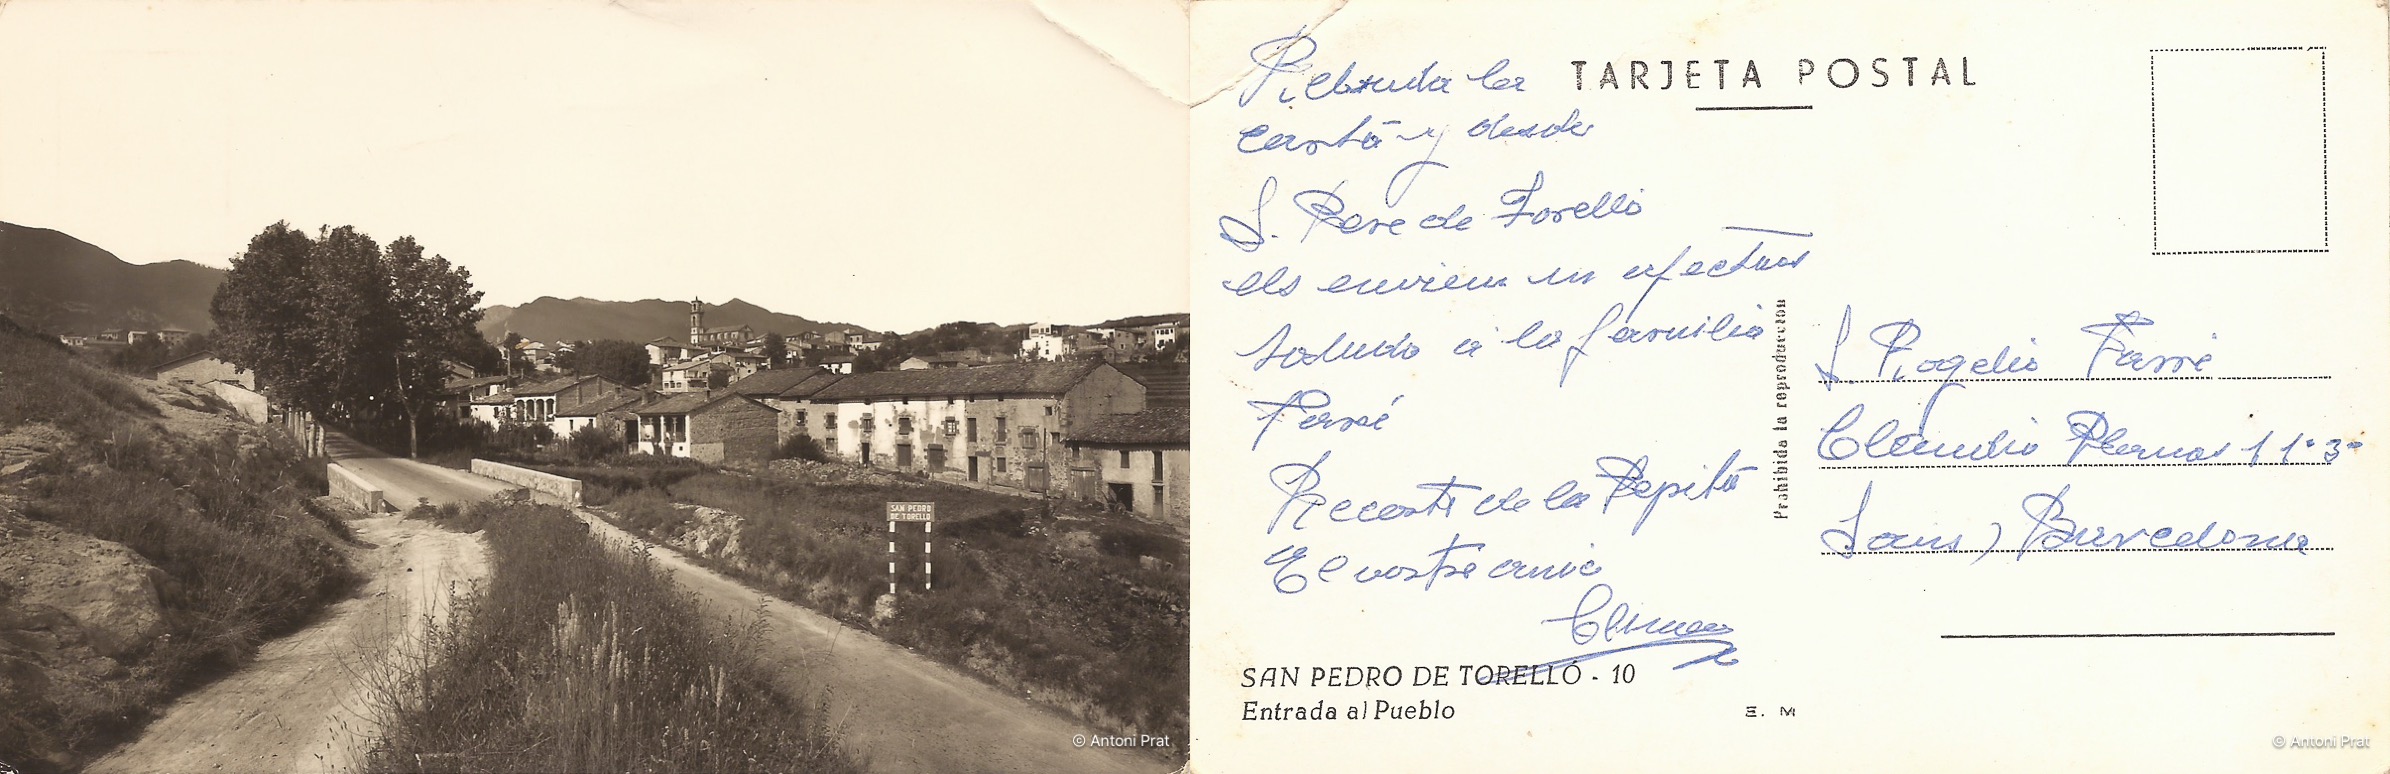 SAN PEDRO
DE TORELLO
© Antoni Prat
TARJETA POSTAL
Rebuda la
carta y desde
S. Pere de Torelló
els enviem un afectuos
saludo a la familia
Farré
Records de la Pepita
El vostre amic
SAN PEDRO DE TORELLÓ - 10
Entrada al Pueblo
E. M
Prohibida la reproducción
S. Rogelio Farré
Claudio Planas 11
Sans) Barcelona
© Antoni Prat